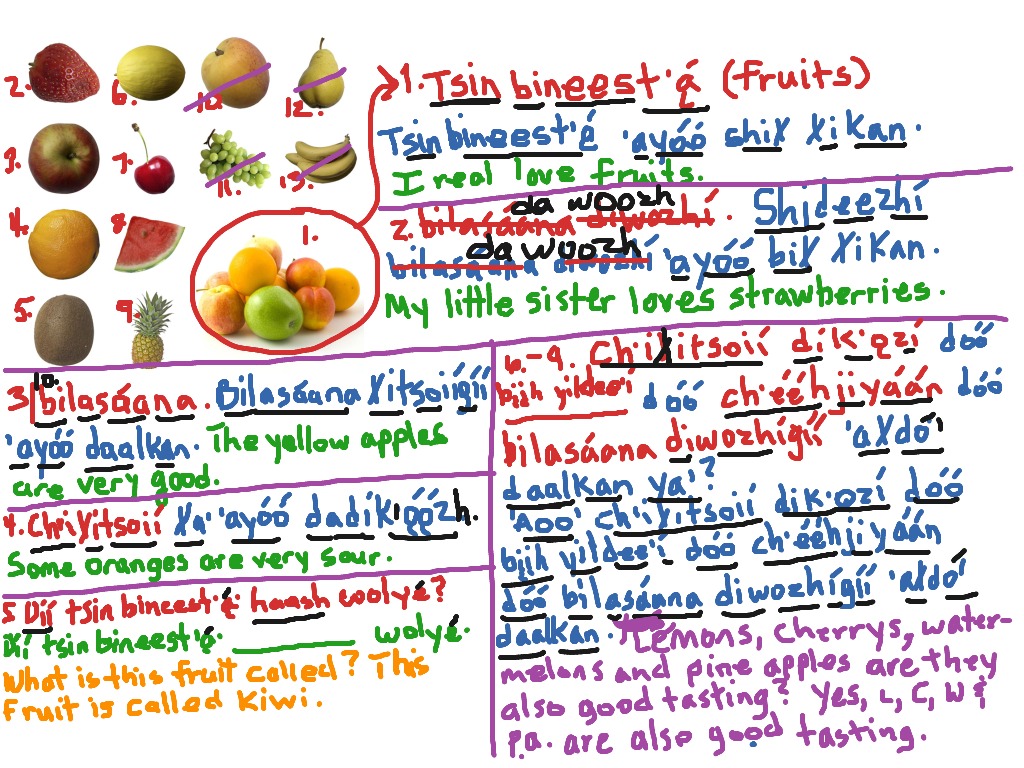 2.
6.
10.
12.
3.
7.
11.
13.
4.
8.
1.
5.
9.
1. Tsin bineest'ą́ (fruits)
Tsin bineest'ą́ 'ayóó shił łikan.
I real love fruits.
da woozh
2. bilasáana diwozhí. Shideezhí
da woozh
bilasáana diwozhí 'ayóó bił łikan.
My little sister loves strawberries.
10.
3 bilasáana. Bilasáana łitsoiígíí
'ayóó daalkan. The yellow apples
are very good.
4. Ch'iłitsoií ła' 'ayóó dadík'ǫ́ǫ́zh.
Some oranges are very sour.
5 Díí tsin bineest'ą́ haash woolyé?
Díí tsin bineest'ą́ ________ wolyé.
What is this fruit called? This
Fruit is called Kiwi.
6.-9. Ch'iłitsoií dík'ǫzí dóó
bįįh yildee'í dóó ch'ééhjiyáán dóó
bilasáana diwozhígíí 'ałdó'
daalkan ya'?
'Aoo' ch'iłitsoií dik'ozí dóó
bįįh yildee'í dóó ch'ééhjiyáán
dóó bilasáana diwozhígíí 'ałdó'
daalkan. Lemons, cherrys, water-
melons and pine apples are they
also good tasting? Yes, L, C, W &
p.a. are also good tasting.